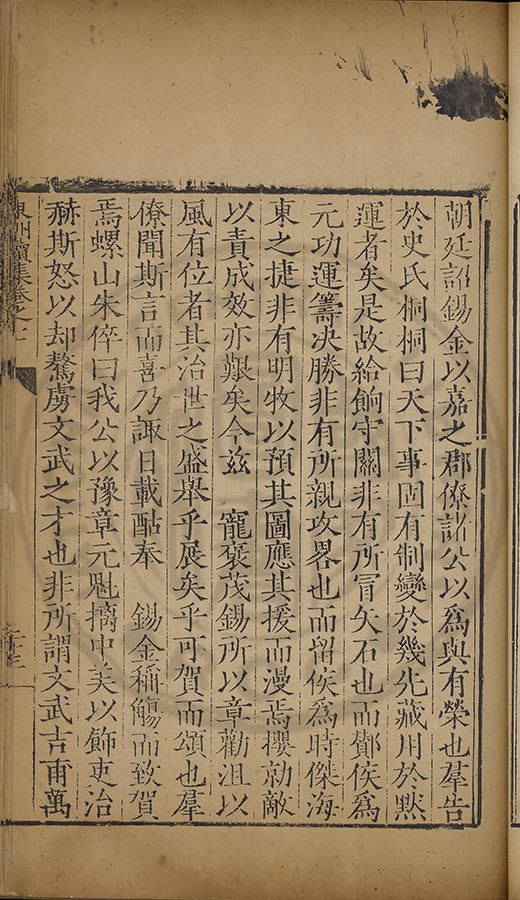 朝廷詔錫金以嘉之郡僚諸公以爲與有榮也羣告
於史氏桐桐曰天下事固有制變於幾先藏用於默
運者矣是故給餉守關非有所冒矢石也而酇侯爲
元功運籌決勝非有所親攻畧也而留侯爲時傑海
東之捷非有明牧以預其圖應其援而漫焉攖勍敵
以責成效亦艱矣今兹 寵褒茂錫所以章勸沮以
風有位者其治世之盛舉乎展矣乎可賀而頌也羣
僚聞斯言而喜乃諏日載酤奉 錫金稱觴而致賀
焉螺山朱倅曰我公以豫章元魁摛中美以飾吏治
赫斯怒以却驁虜文武之才也非所謂文武吉甫萬
東洲續集卷之七